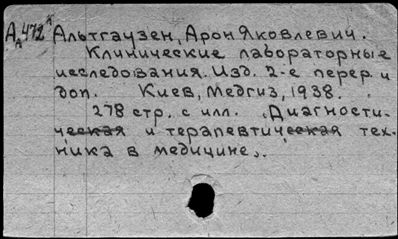 А 472 Альтгаузен, Арон Яковлевич.
Клинические лабораторные
исследования. Изд. 2-е перер. и
доп. Киев, Медгиз, 1938.
278 стр. с илл. „Диагности-
ческая и терапевтическая тех-
ника в медицине„.